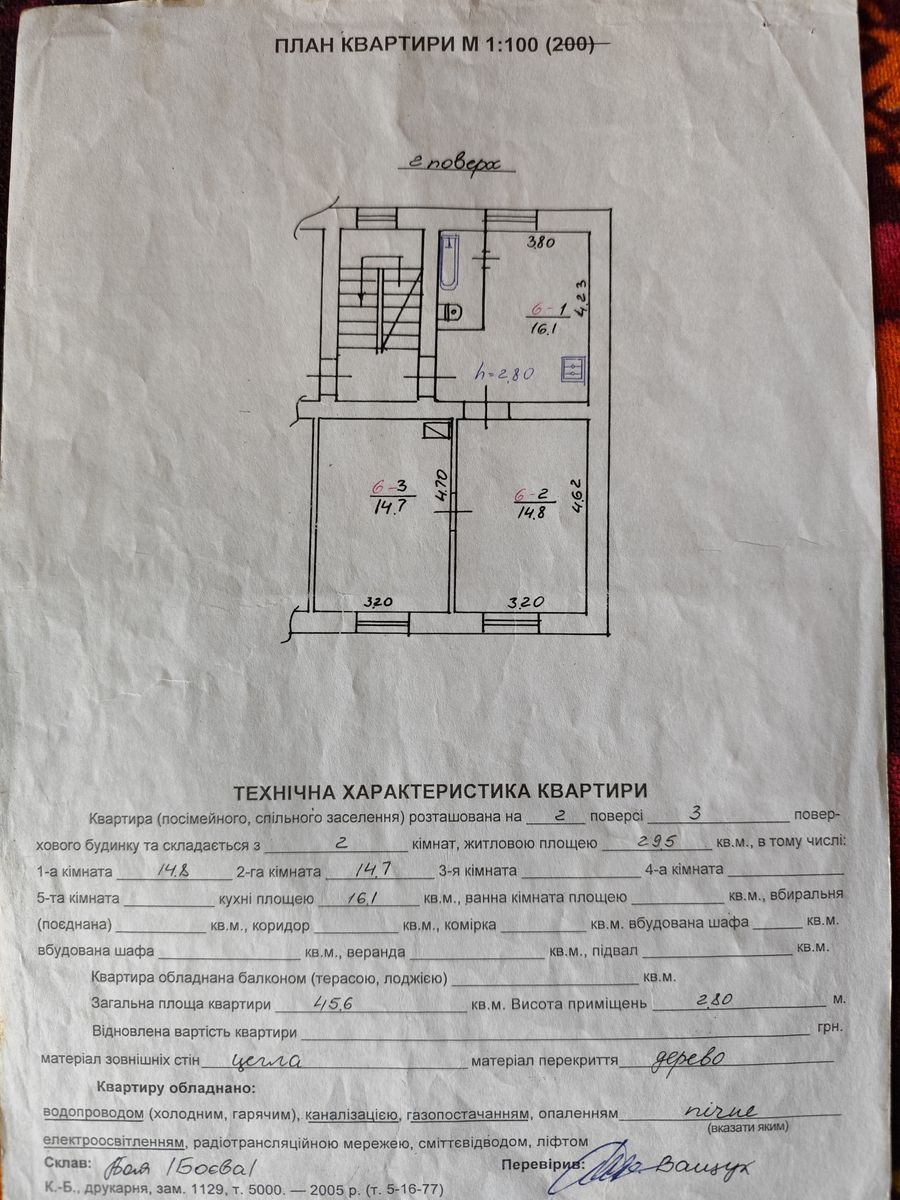 ПЛАН КВАРТИРИ М 1:100 (200)
2 поверх
3.80
4.23
6-1
16.1
h=2.80
6-3
14.7
4.70
6-2
14.8
4.62
3.20
3.20
ТЕХНІЧНА ХАРАКТЕРИСТИКА КВАРТИРИ
Квартира (посімейного, спільного заселення) розташована на 2 поверсі 3 повер-
хового будинку та складається з 2 кімнат, житловою площею 29.5 кв.м., в тому числі:
1-а кімната 14.8 2-га кімната 14.7 3-я кімната 4-а кімната
5-та кімната кухні площею 16.1 кв.м., ванна кімната площею кв.м., вбиральня
(поєднана) кв.м., коридор кв.м., комірка кв.м. вбудована шафа кв.м.
вбудована шафа кв.м., веранда кв.м., підвал кв.м.
Квартира обладнана балконом (терасою, лоджією) кв.м.
Загальна площа квартири 45.6 кв.м. Висота приміщень 2.80 м.
Відновлена вартість квартири грн.
матеріал зовнішніх стін цегла матеріал перекриття дерево
Квартиру обладнано:
водопроводом (холодним, гарячим), каналізацією, газопостачанням, опаленням пічне
(вказати яким)
електроосвітленням, радіотрансляційною мережею, сміттєвідводом, ліфтом
Склав: /Боєва/ Перевірив: Ващук
К.-Б., друкарня, зам. 1129, т. 5000. — 2005 р. (т. 5-16-77)